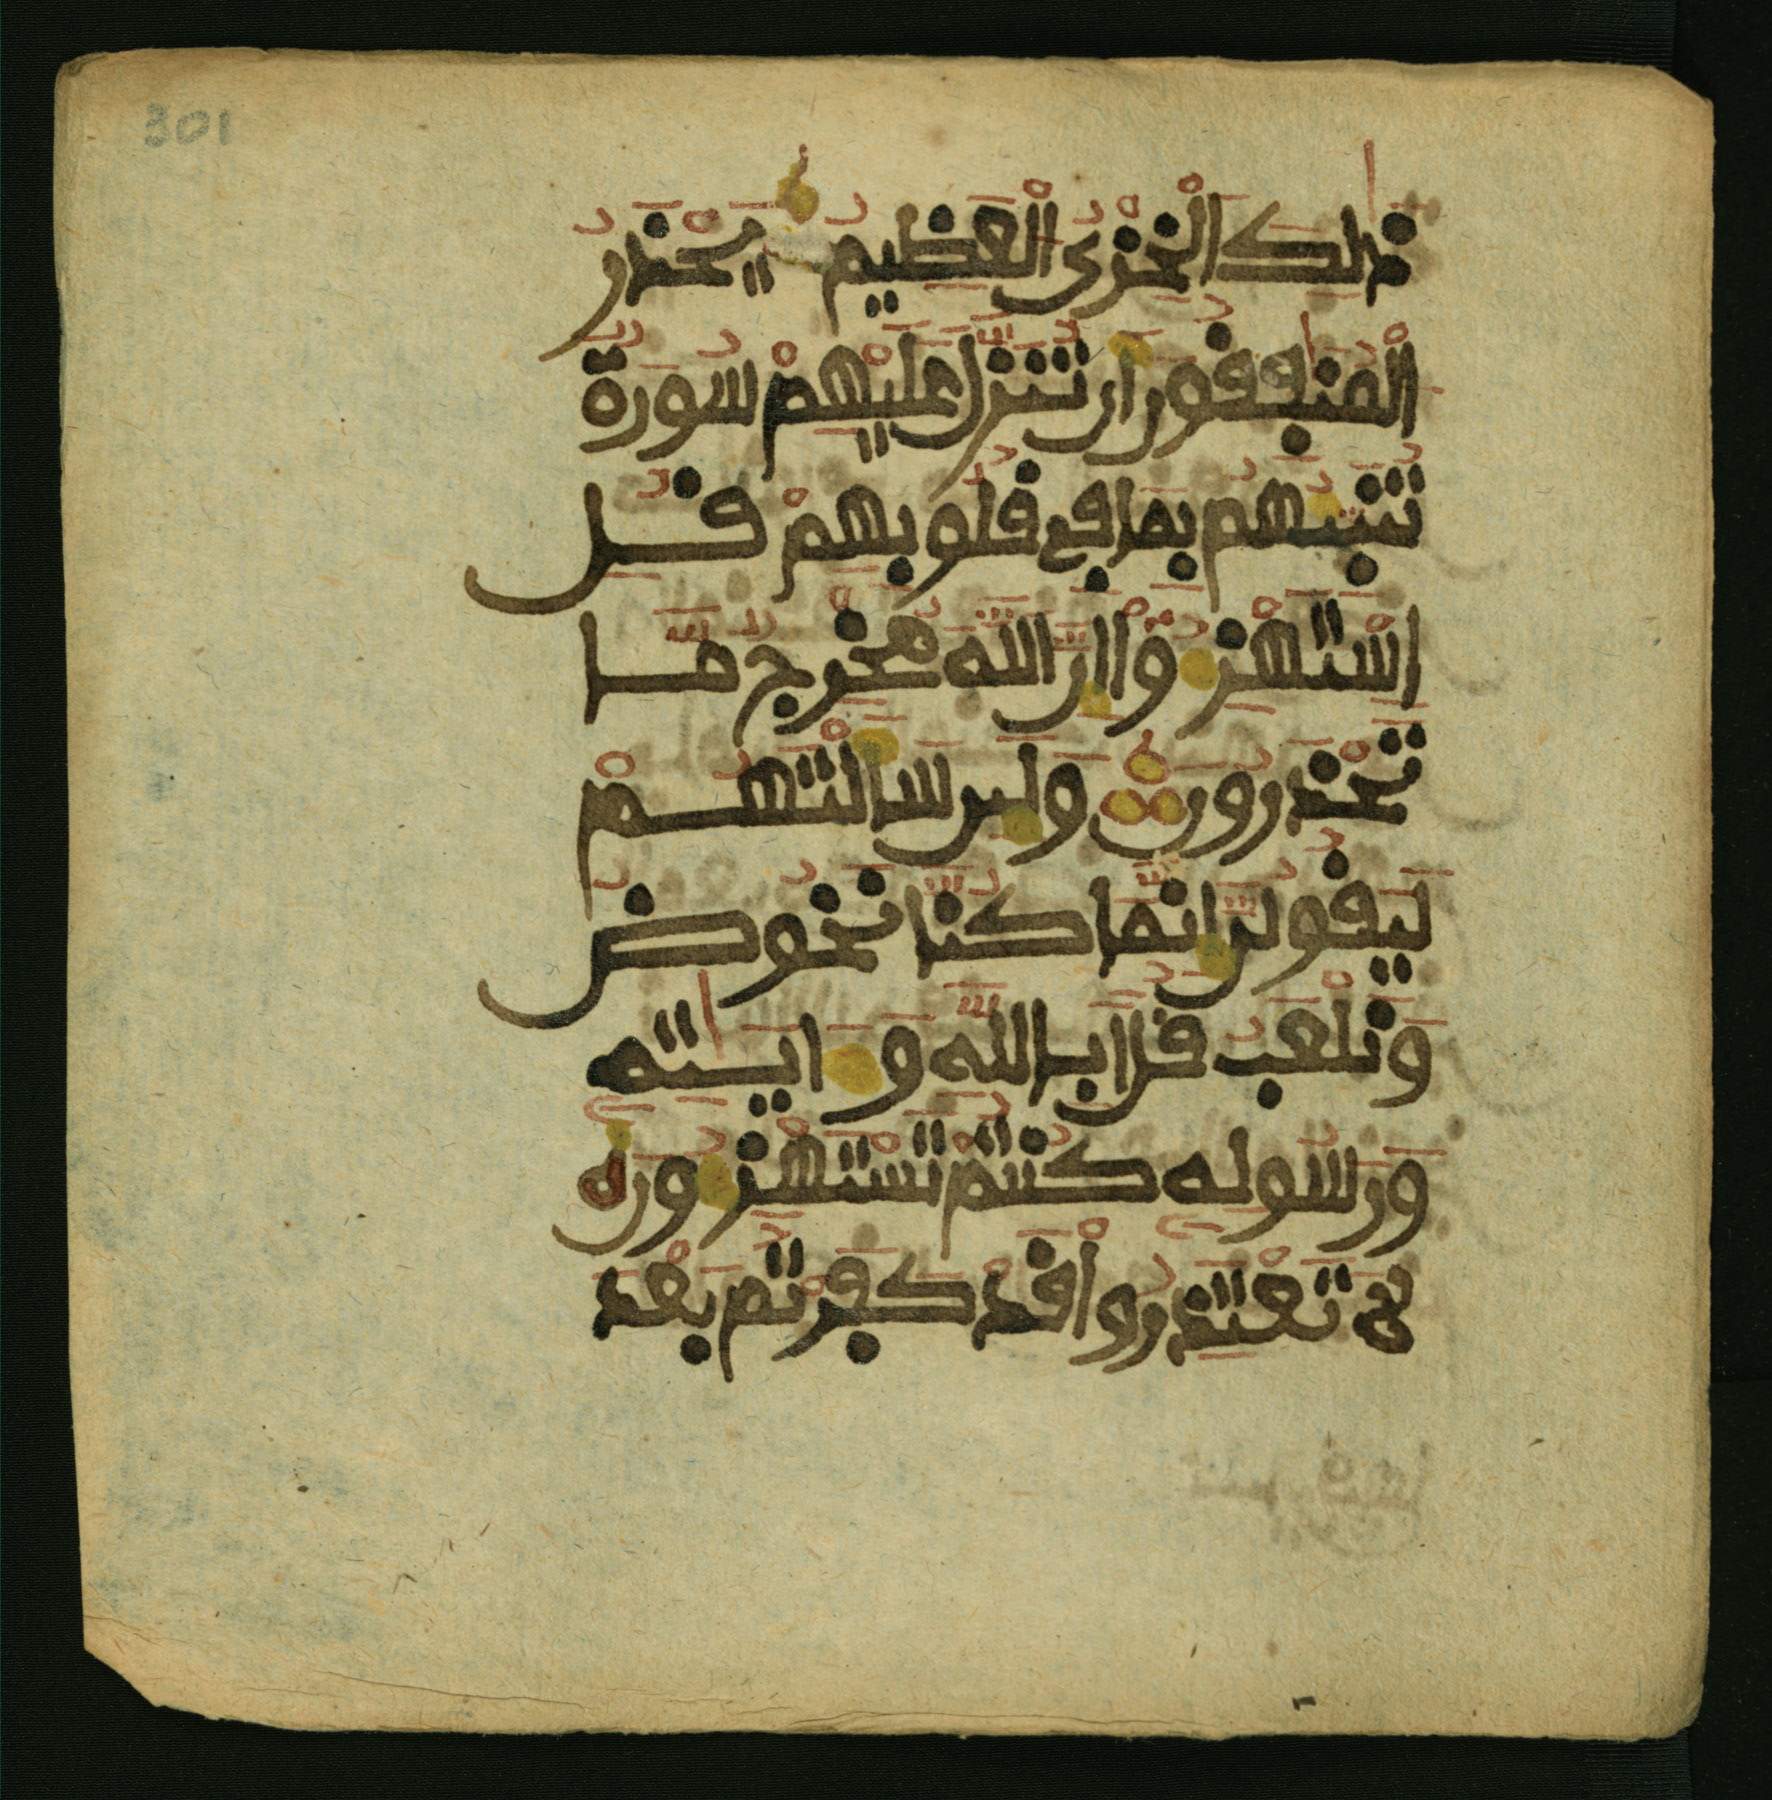 301
ذَٰلِكَ الْخِزْيُ الْعَظِيمُ يَحْذَرُ
الْمُنَٰفِقُونَ أَن تُنَزَّلَ عَلَيْهِمْ سُورَةٌ
تُنَبِّئُهُم بِمَا فِي قُلُوبِهِمْ قُلِ
اسْتَهْزِءُوا إِنَّ اللَّهَ مُخْرِجٌ مَّا
تَحْذَرُونَ وَلَئِن سَأَلْتَهُمْ
لَيَقُولُنَّ إِنَّمَا كُنَّا نَخُوضُ
وَنَلْعَبُ قُلْ أَبِاللَّهِ وَءَايَٰتِهِ
وَرَسُولِهِ كُنتُمْ تَسْتَهْزِءُونَ
لَا تَعْتَذِرُوا قَدْ كَفَرْتُم بَعْدَ